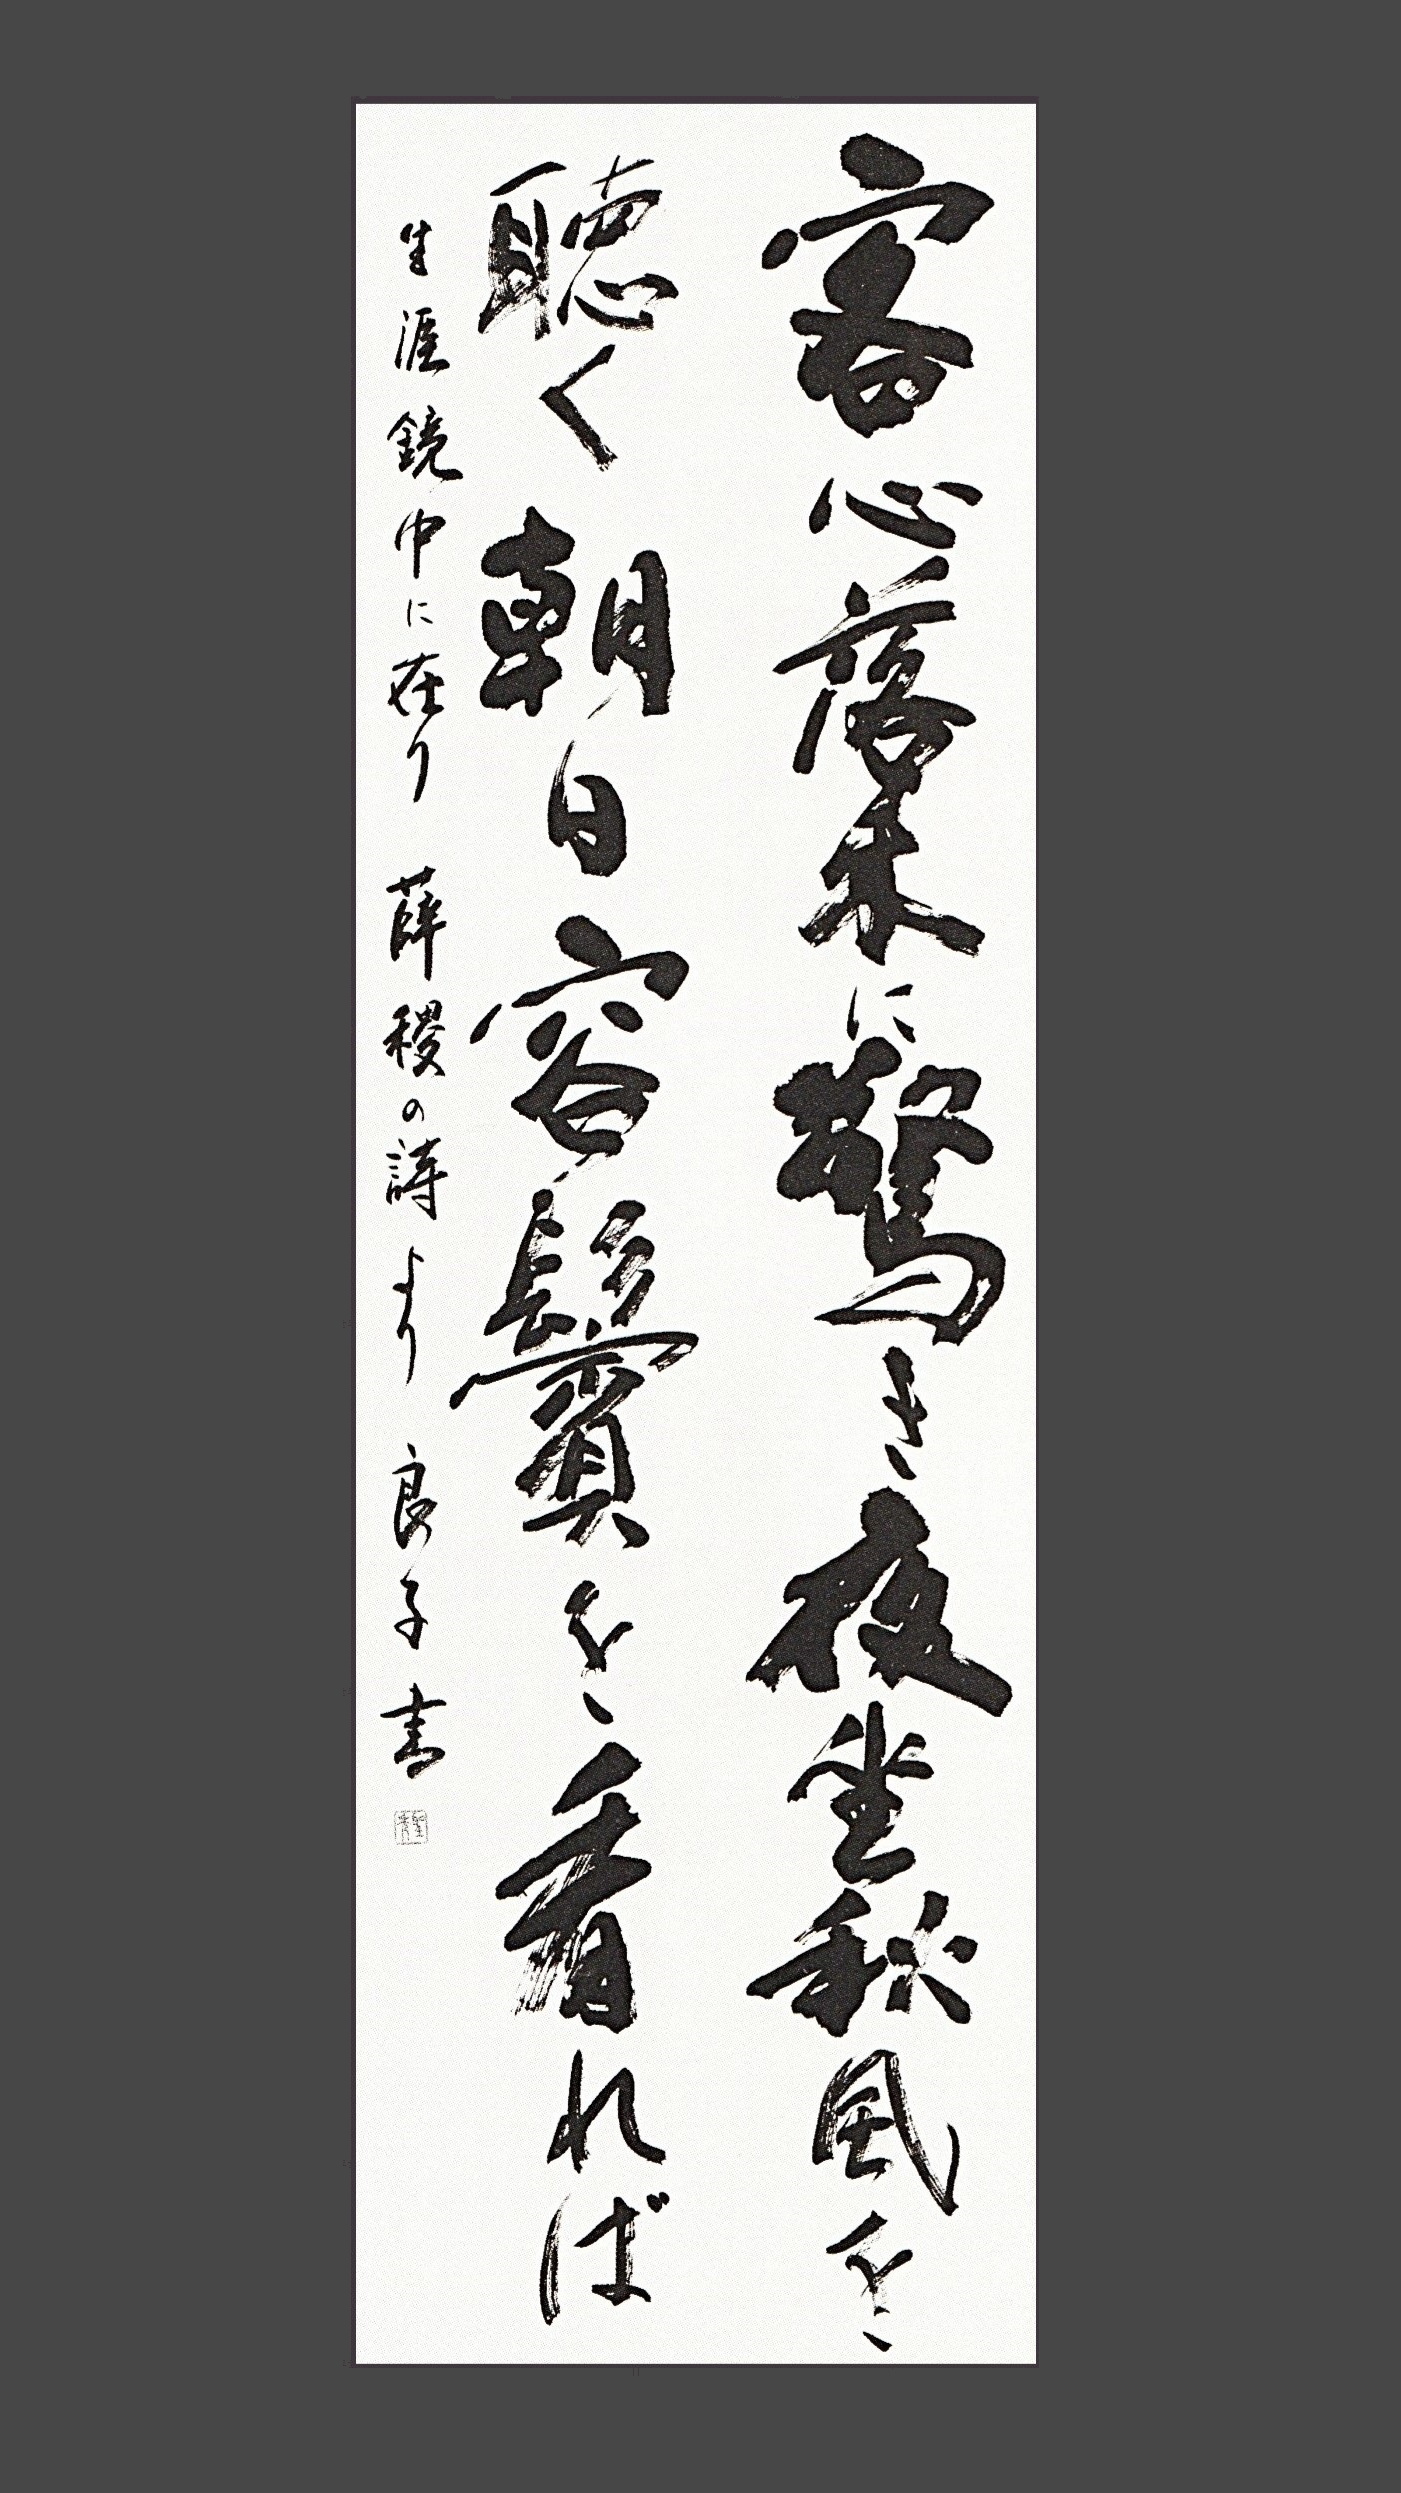 客心落木に驚き夜坐秋風を
聴く朝日容鬢を看れば
生涯鏡中に在り 薛稷の詩より 良子書